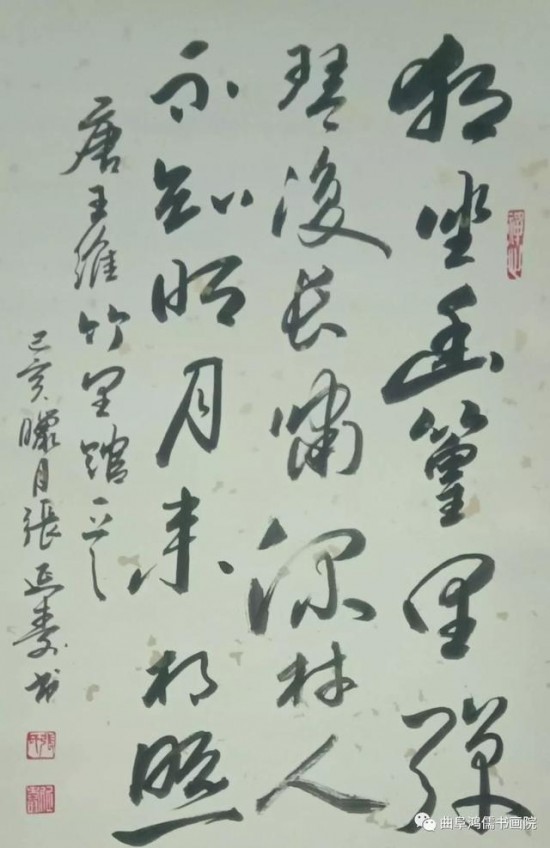 禪心
獨坐幽篁里彈
琴復長嘯深林人
不知明月来相照
唐王維竹里館一首
己亥臘月張延寿书
曲阜鸿儒书画院